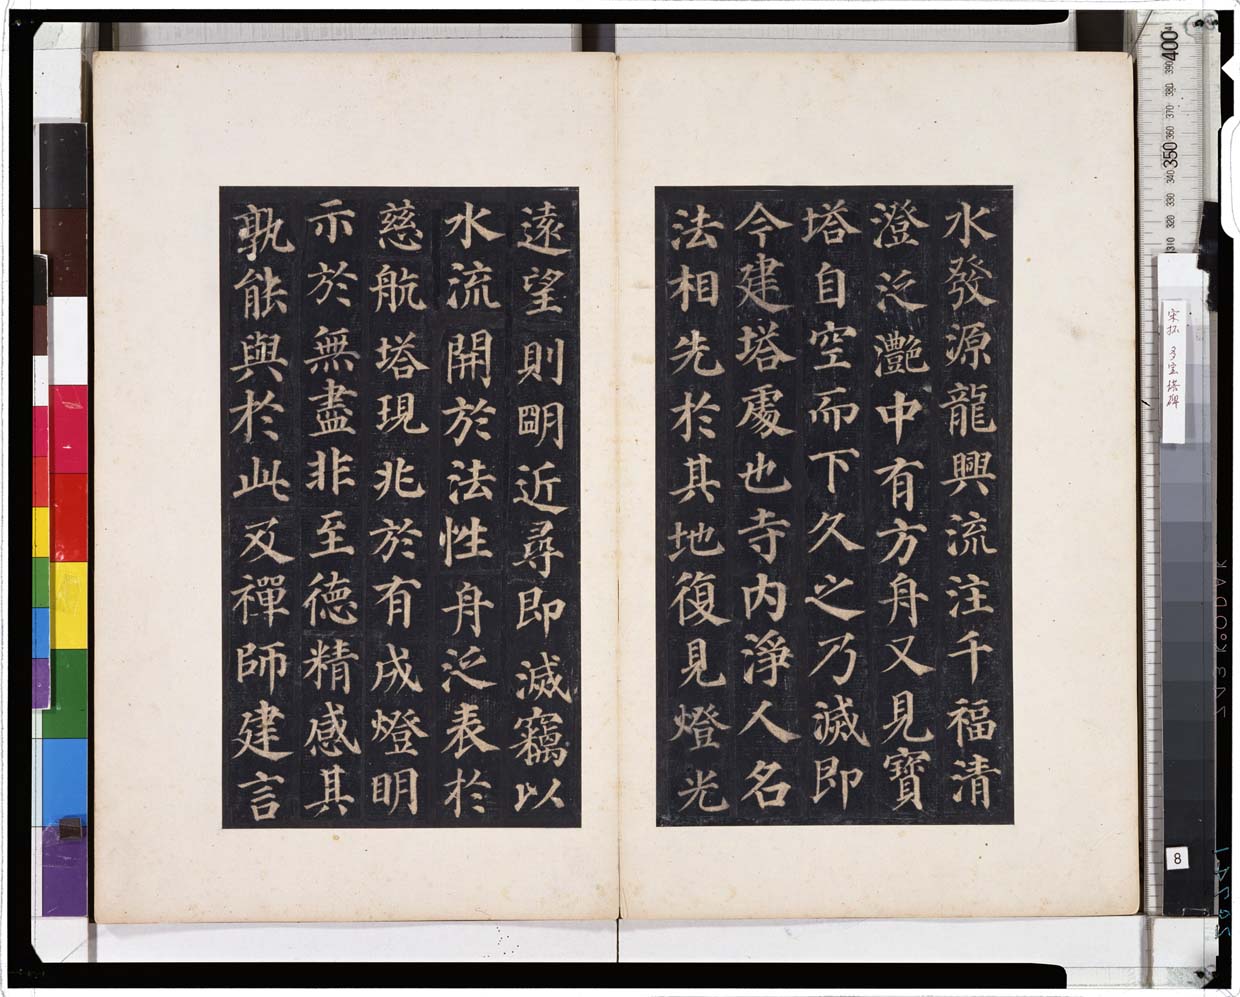 水發源龍興流注千福清
澄泛灔中有方舟又見寶
塔自空而下久之乃滅即
今建塔處也寺内淨人名
法相先於其地復見燈光
遠望則明近尋即滅竊以
水流開於法性舟泛表於
慈航塔現兆於有成燈明
示於無盡非至德精感其
孰能與於此及禪師建言
宋拓 多宝塔碑
8
400
390
380
370
360
350
340
330
320
310
KODAK